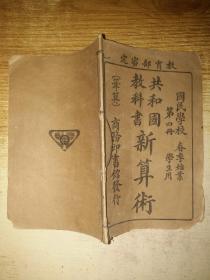 教育部審定
國民學校 春季始業
第四冊 學生用
共和國
教科書
新算術
(筆算)
商務印書館發行